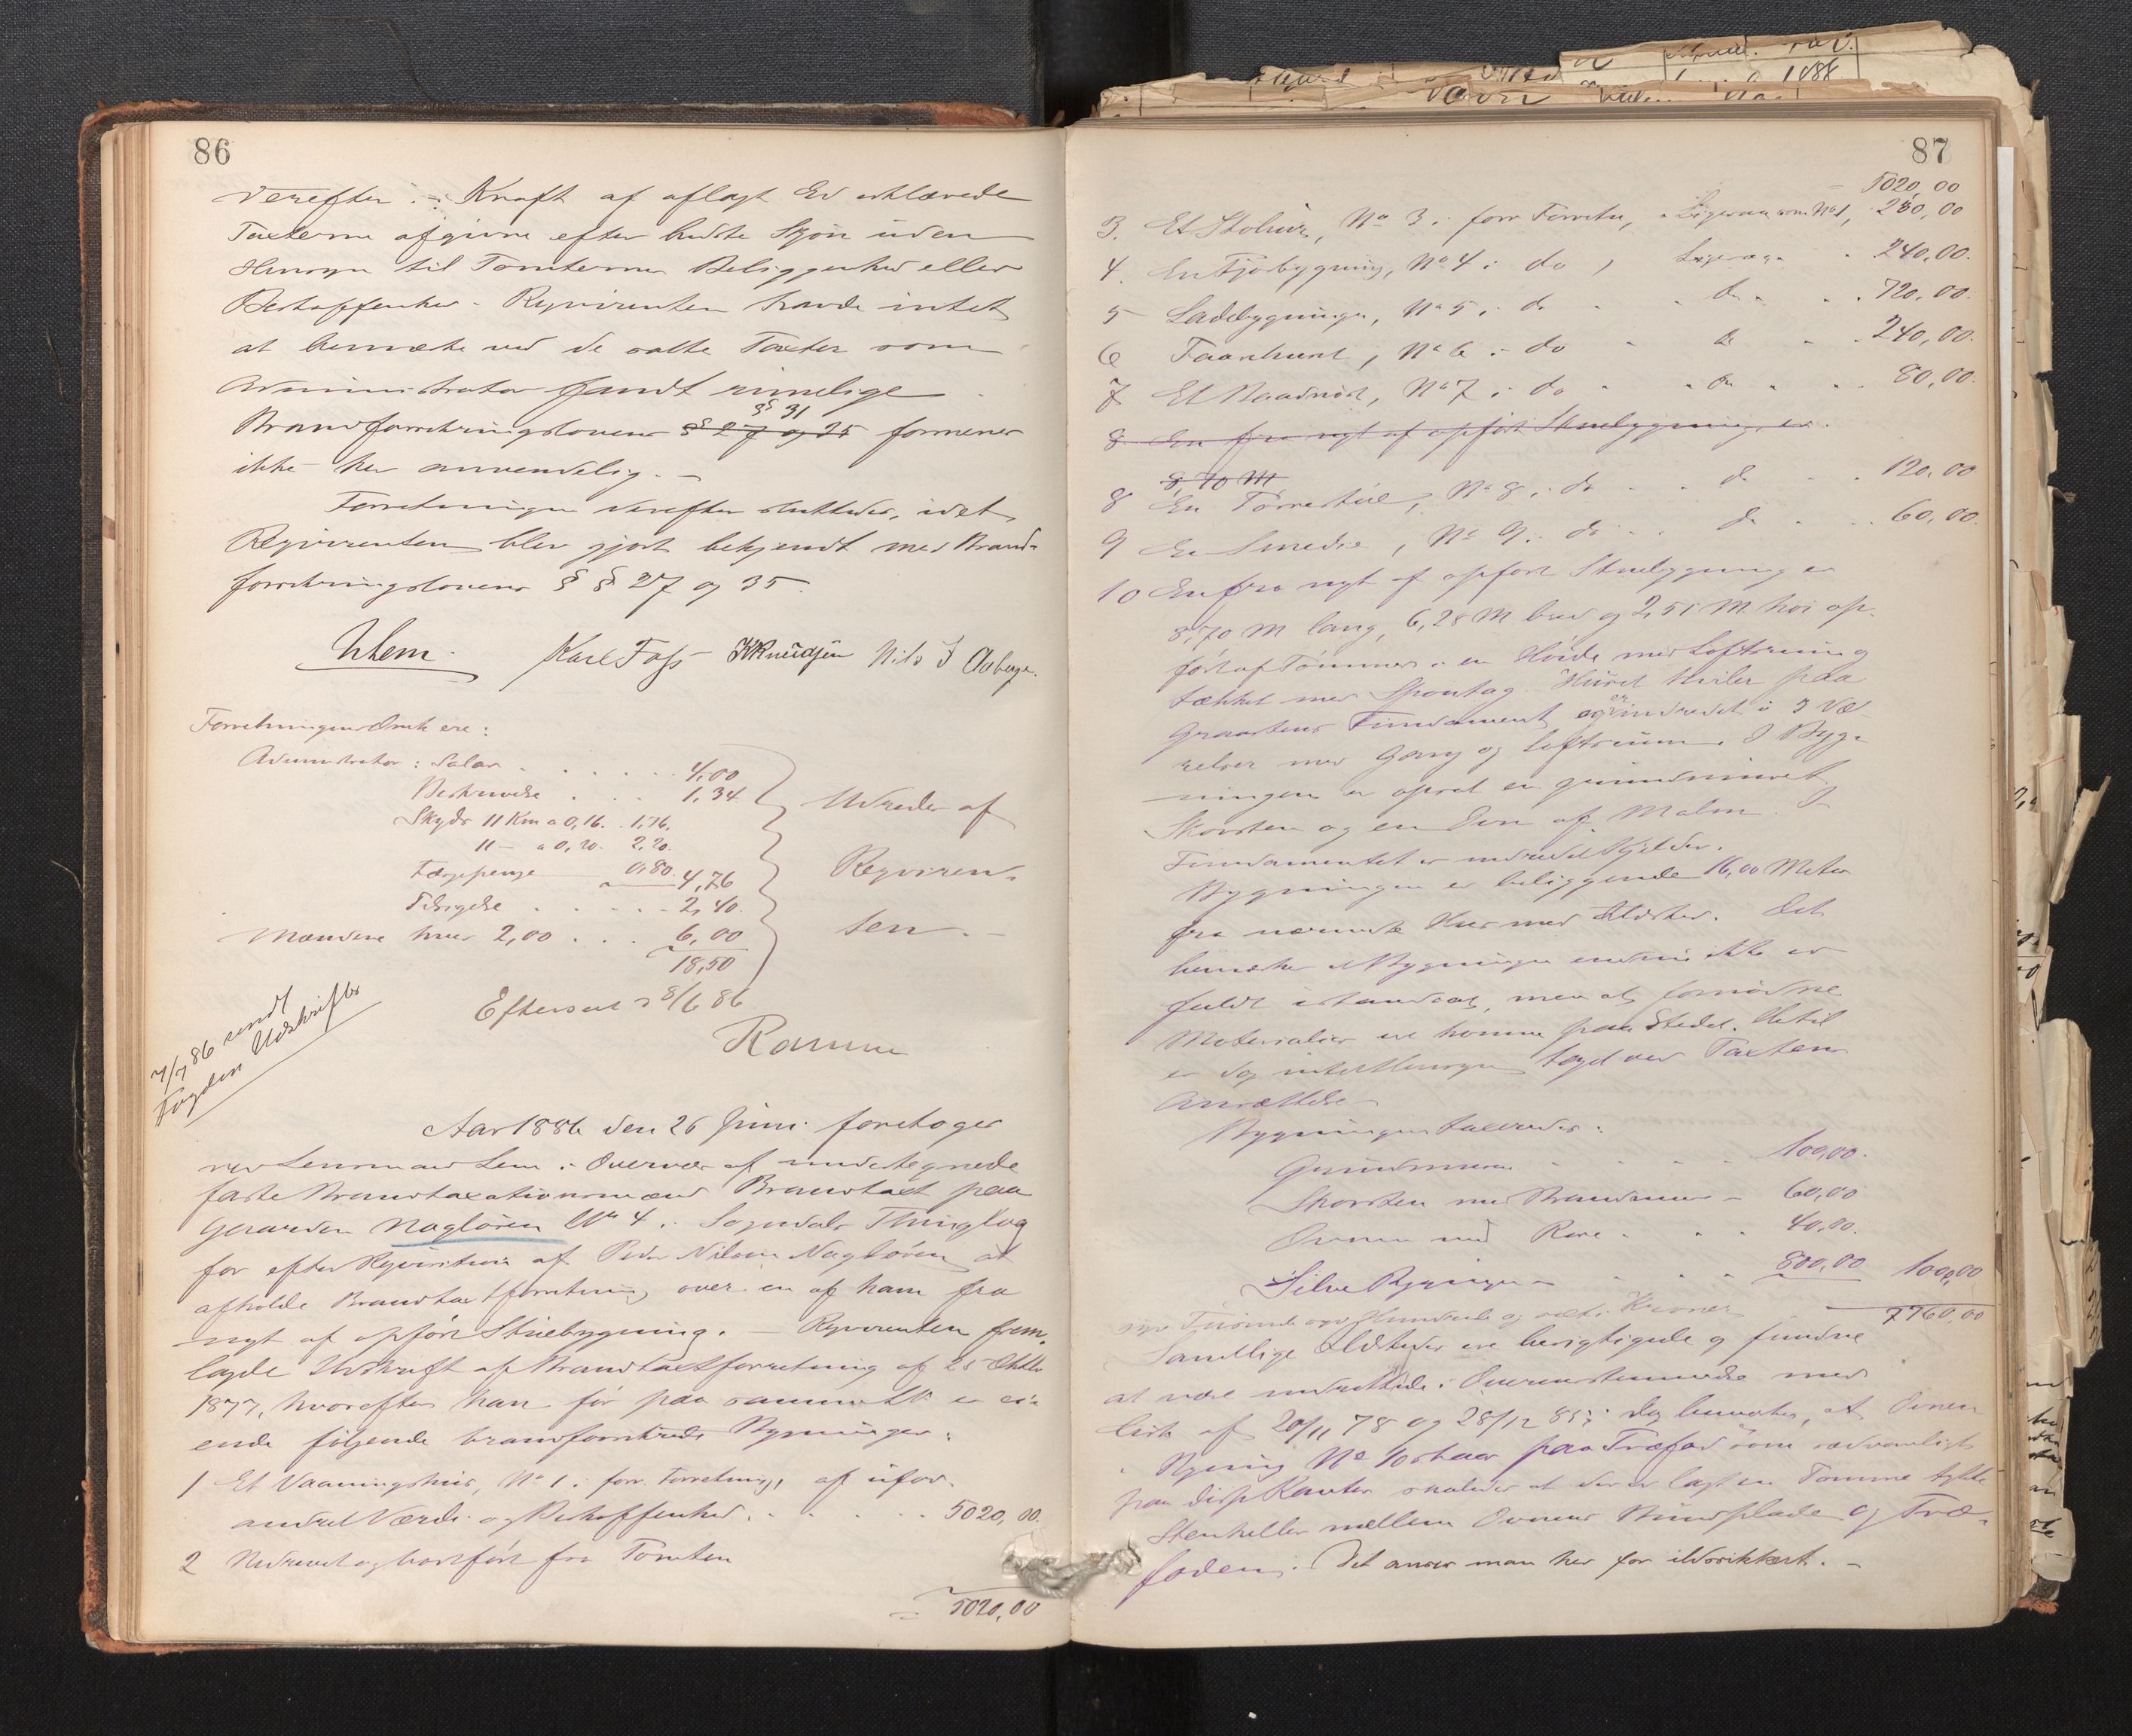 86
Derefter i Kraft af aflagt Ed erklærede
Taxterne afgivne efter bedste Skjøn uden
Hensyn til Tomternes Beliggenhed eller
Beskaffenhed. Reqvirenten havde intet
at bemærke ved de satte Taxter som
Administrator fandt rimelige
§ 31
Brandforsikringslovens §§ 27 og 35 formenes
ikke her anvendelig. -
Forretningen derefter sluttedes, idet
Reqvirenten blev gjort bekjendt med Brand-
forsikringslovens §§ 27 og 35.
Karl Foss K Knudsen Nils J
Forretningens Omk. ere:
Administrator: Salær . . . . 4,00
Beskrivelse . . . 1,34
Skyds 11 Km a 0,16 . 1,76.
11 - a 0,20. 2,20.
Færgepenge 0,80. 4,76
Tilsigelse . . . . 2,40.
Mændene hver 2,00 . . . 6,00
18,50
Udredes af
Reqviren-
ten. -
Efterseet 8/6 86
7/7 86 sendt
Fogden Udskrift
Aar 1886 den 26 Juni foretoges
ved Lensmand Lem i Overvær af undertegnede
faste Brandtaxationsmænd Brandtaxt paa
Gaarden Nagløren No 4 i Sogndals Thinglag
for efter Reqvisition af Peder Nilsen Nagløren at
afholde Brandtaxtforretning over en af ham fra
nyt af opført Stuebygning. - Reqvirenten frem-
lagde Udskrift af Brandtaxtforretning af 25 Oktbr
1877, hvorefter han før paa samme er ei-
ende følgende brandforsikrede Bygninger:
1 Et Vaaningshus, No 1 i forr. Forretning, af ufor-
andret Værdi og Beskaffenhed . . . . . 5020,00.
2 Nedrevet og bortført fra Tomten
= 5020,00
87
5020,00
3. Et Stolhus, No 3 i forr. Forretn., Ligesaa som No 1, 280,00
4. En Fjøsbygning, No 4 i do, Ligesaa . 240,00.
5 Ladebygningen, No 5 i do . . do . . . 720,00.
6 Faarehuset, No 6 i do . do . . 240,00.
7 Et Vaadnøst, No 7 i do . . do . . . 80,00.
8 En fra nyt af opført Stuebygning, er
8,70 M
8 En , No 8 i do . . do . . 120,00
9 En Smedie, No 9 i do . . do . . . 60,00.
10 En fra nyt af opført Stuebygning er
8,70 M lang, 6,28 M bred og 2,51 M høi op-
ført af Tømmer i en Høide med Loftsrum og
tækket med Spontag. Huset hviler paa
Graastens Fundament og er indredet i 3 Væ-
relser med Gang og Loftsrum. I Byg-
ningen er opsat en grundmuret
Skorsten og en Ovn af Malm. I
Fundamentet er indredet Kjelder.
Bygningen er beliggende 16,00 Meter
fra nærmeste Hus med Ildsted. Det
bemærkes at Bygningen endnu ikke er
fuldt istandsat, men at fornødne
Materialier ere komne paa Stedet. Hertil
er dog intet Hensyn taget ved Taxtens
Ansættelse
Bygningen taxeredes:
Grundmuren . . . . . 100,00.
Skorsten med Brandmur - 60,00
Ovnen med Rør . . . 40,00.
Selve Bygningen . . . 800,00 1000,00
syv Tusinde syv Hundrede og sexti Kroner 7760,00
Samtlige Ildsteder ere besigtigede og fundne
at være indrettede i Overensstemmelse med
Cirk. af 20/11 78 og 28/12 85; dog bemærkes, at Ovnen
i Bygning No 10 staar paa Træfod som sædvanligt
paa disse Kanter saaledes at der er lagt en Tomme tykke
Stenheller mellem Ovnens Bundplade og Træ-
foden. Det anser man her for ildsikkert. -